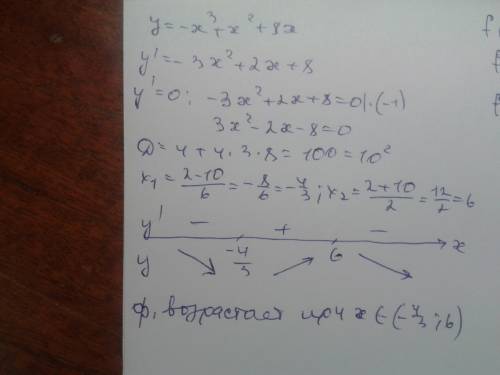 y=-x³+x²+8x
y'=-3x²+2x+8
y'=0; -3x²+2x+8=0|·(-1)
3x²-2x-8=0
D=4+4·3·8=100=10²
x₁=(2-10)/6=-8/6=-4/3; x₂=(2+10)/2=12/2=6
y' - + -
-4/3 6 x
y
ф. возрастает при x∈(-4/3;6)